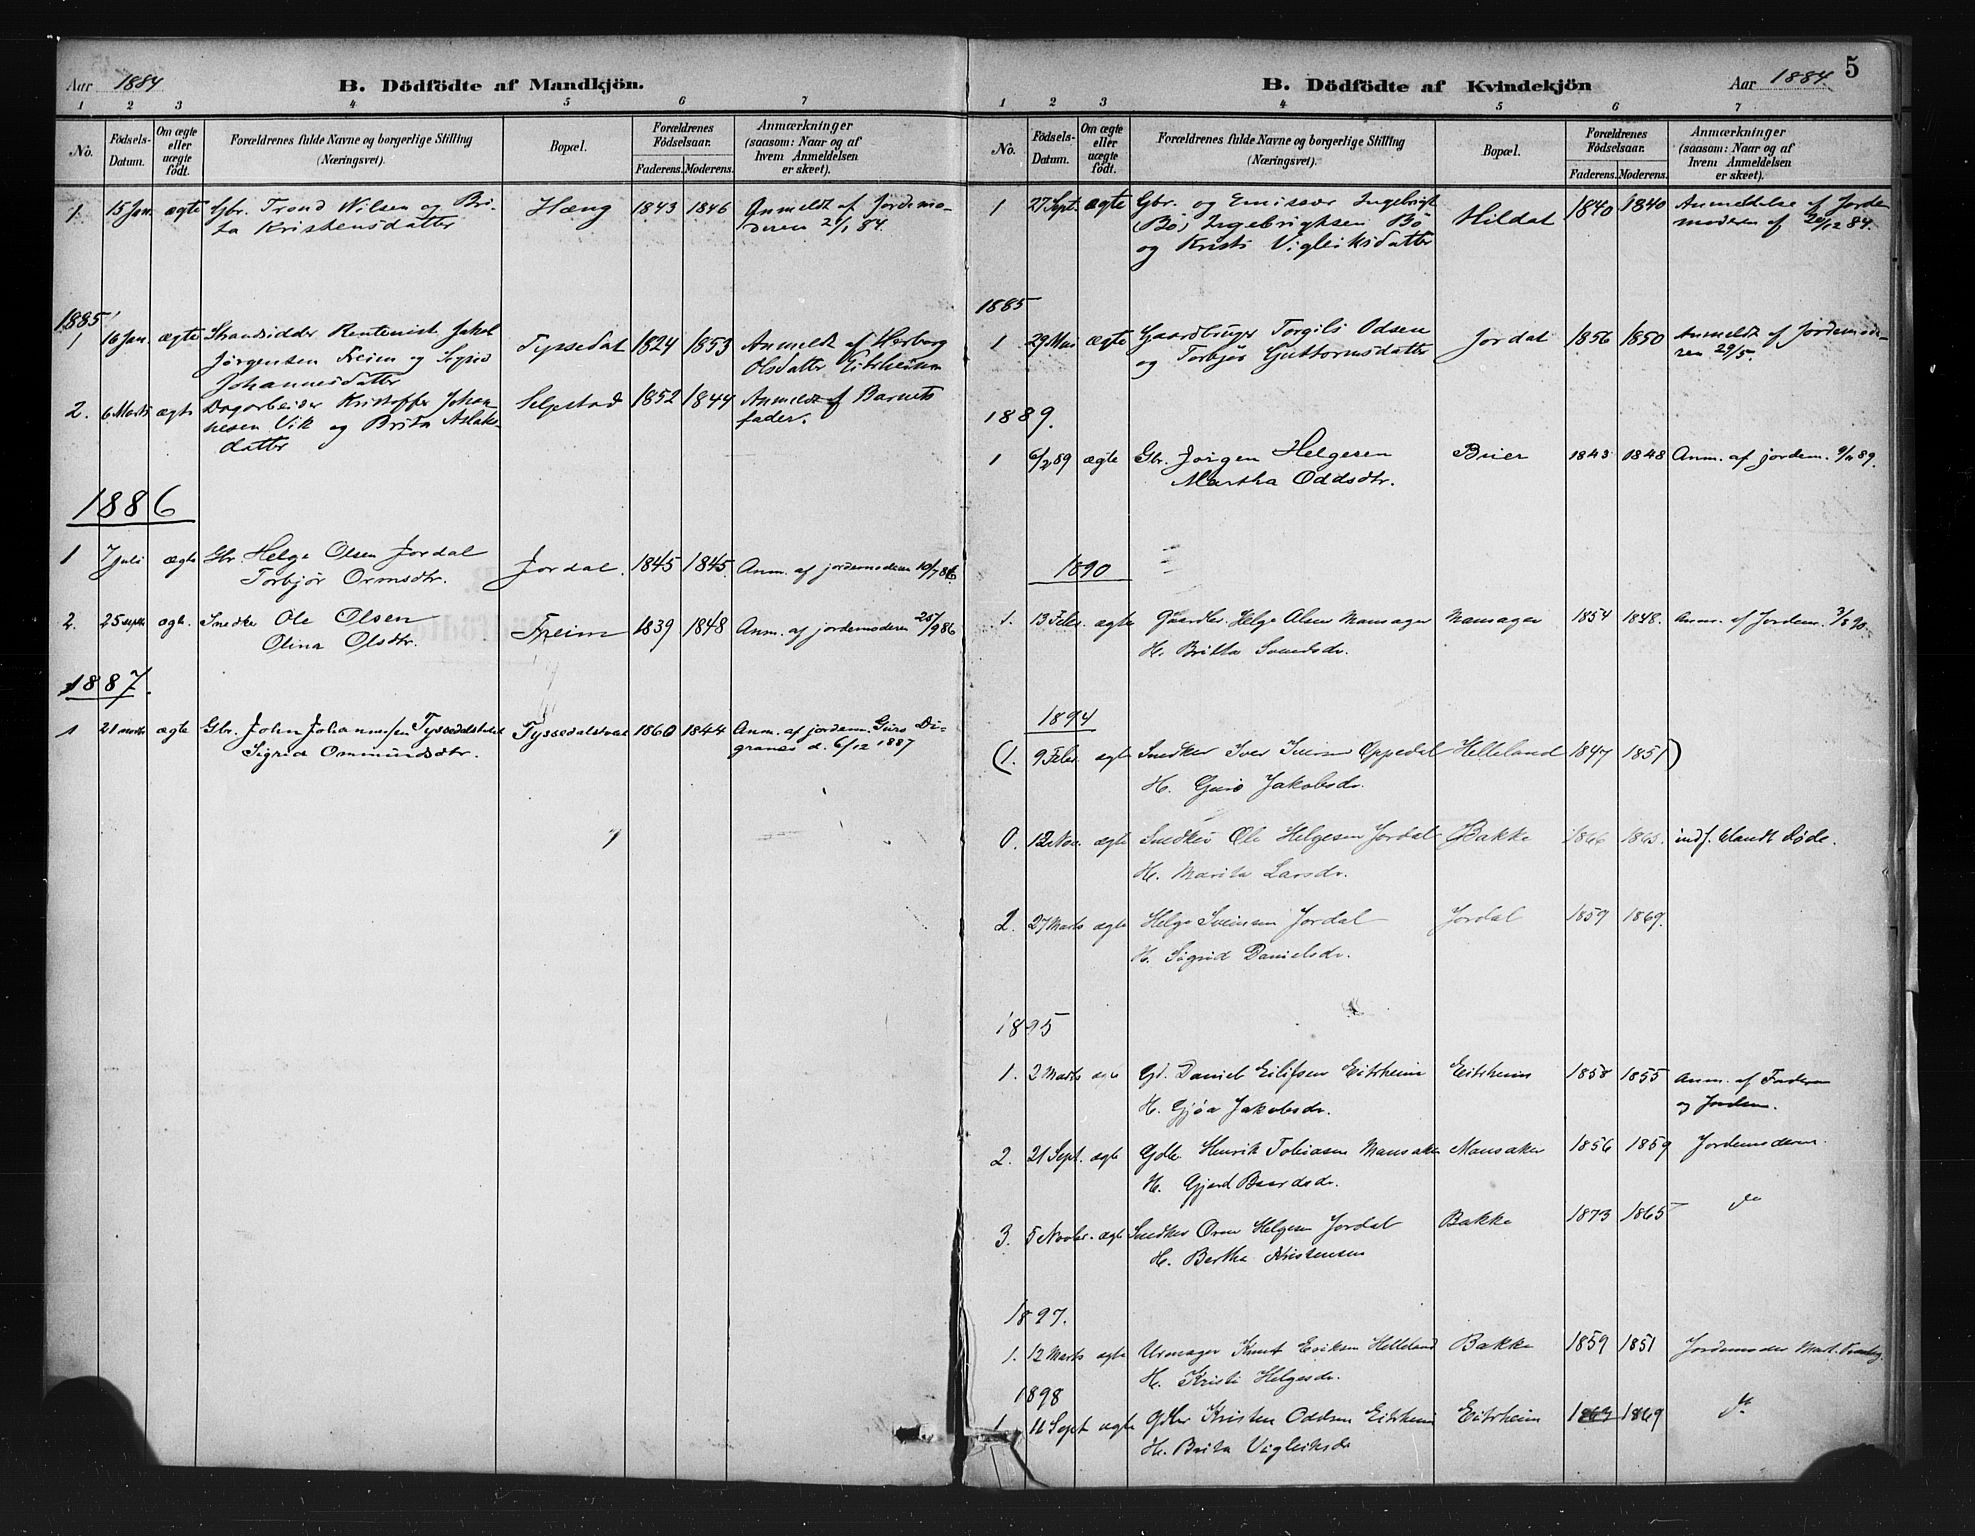 Aar 1884
B. Dödfödte af Mandkjön.
1 2 3 4 5 6 7
No. Födsels-Datum. Om ægte eller uægte født. Forældrenes fulde Navne og borgerlige Stilling (Næringsvei). Bopæl. Forældrenes Födselsaar. Faderens. Moderens. Anmærkninger (saasom: Naar og af hvem Anmeldelsen er skeet).
1. 15 Jan. ægte Gbr. Trond Nilsen og Bri- Hæng 1843 1846 Anmeldt af Jordemo-
ta Kristensdatter deren 2/1 84.
1885
1 16 Jan. ægte Strandsidder Rentenist Jakob Tyssedal 1824 1853 Anmeldt af Herborg
Jørgensen Freim og Sigrid Olsdatter Eitrheim
Johannesdatter
2. 6 Marts ægte Dagarbeider Kristoffer Johan- Seljestad 1852 1844 Anmeldt af Barnets
nesen Vik og Brita Aslaks- fader.
datter
1886
1 7 juli ægte Gbr. Helge Olsen Jordal Jordal. 1845 1845. Anm. af jordemoderen 10/7 86
Torbjør Ormsdtr.
2. 25 septbr ægte. Snedker Ole Olsen Freim 1839 1848 Anm. af jordemoderen 25/9 86
Olina Olsdtr.
1887.
1 21 novbr ægte Gbr. John Johannesen Tyssedalstveit Tyssedalstveit 1860 1844 Anm. af jordem. Guro Di-
Sigrid Ommundsdtr. granes d. 6/12 1887
5
B. Dödfödte af Kvindekjön
Aar 1884.
1 2 3 4 5 6 7
No. Födsels-Datum. Om ægte eller uægte födt. Forældrenes fulde Navne og borgerlige Stilling (Næringsvei). Bopæl. Forældrenes Födselsaar. Faderens. Moderens. Anmærkninger (saasom: Naar og af hvem Anmeldelsen er skeet).
1 27 Sept. ægte Gbr. og Emissær Ingebrigt Hildal 1840 1840 Anmeldelse af Jorde
(Bö) Ingebrigtsen Bö moderen af 20/12 84.
og Kristi Vigleiksdatter
1885
1 29 Mai ægte Gaardbruger Torgils Odsen Jordal 1856 1850 Anmeldt af Jordemode-
og Torbjør Guttormsdatter ren 29/5.
1889.
1 6/2 89 ægte Gbr. Jørgen Helgesen Buer 1843 1848 Anm. af jordem. 89.
Martha Oddsdtr.
1890
1. 13 Febr. ægte Gaardbr. Helge Olsen Mansager Mansager 1854 1848. Anm. af Jordem. 3/3 90.
H. Britta Svendsdr.
1894
(1. 9 Febr. ægte Snedker Iver Iversen Oppedal Helleland 1847 1851)
H. Guro Jakobsdr.
0. 12 Nov. ægte Snedker Ole Helgesen Jordal Bakke 1866 1865. indf. blandt døde.
H. Marita Larsdr.
2. 27 Marts ægte Helge Svensen Jordal Jordal 1859 1869.
H. Sigrid Danielsdr.
1895
1. 2 Marts ægte Gd. Daniel Eilifsen Eitrheim Eitrheim 1858 1855 Anm. af Faderen
H. Gjöa Jakobsdr. og Jordem.
2. 21 Sept. ægte Gdbr. Henrik Tobiasen Mansaker Mansaker 1856 1859 Jordemoderen.
H. Gjerd Baardsdr.
3. 5 Novbr. ægte Snedker Orm Helgesen Jordal Bakke 1873 1865 do
H. Bertha Kristensen
1897.
1. 12 Marts ægte Urmager Knut Eriksen Helleland Bakke 1859 1851 Jordemoder Mart.
H. Kristi Helgesdr.
1898
1. 16 Sept ægte Gdbr Kristen Oddsen Eitrheim Eitrheim 1869 do
H. Brita Vigleiksdr